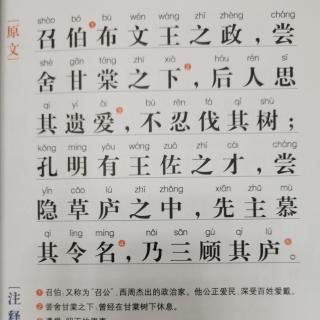 原文
shào bó bù wén wáng zhī zhèng cháng
召伯❶布文王之政，尝
shè gān táng zhī xià hòu rén sī
舍甘棠之下❷，后人思
qí yí ài bù rěn fá qí shù
其遗爱❸，不忍伐其树；
kǒng míng yǒu wáng zuǒ zhī cái cháng
孔明有王佐之才，尝
yǐn cǎo lú zhī zhōng xiān zhǔ mù
隐草庐之中，先主慕
qí lìng míng nǎi sān gù qí lú
其令名❹，乃三顾其庐❺。
注释
❶ 召伯，又称为“召公”，西周杰出的政治家。他公正爱民，深受百姓爱戴。
❷ 尝舍甘棠之下：曾经在甘棠树下休息。